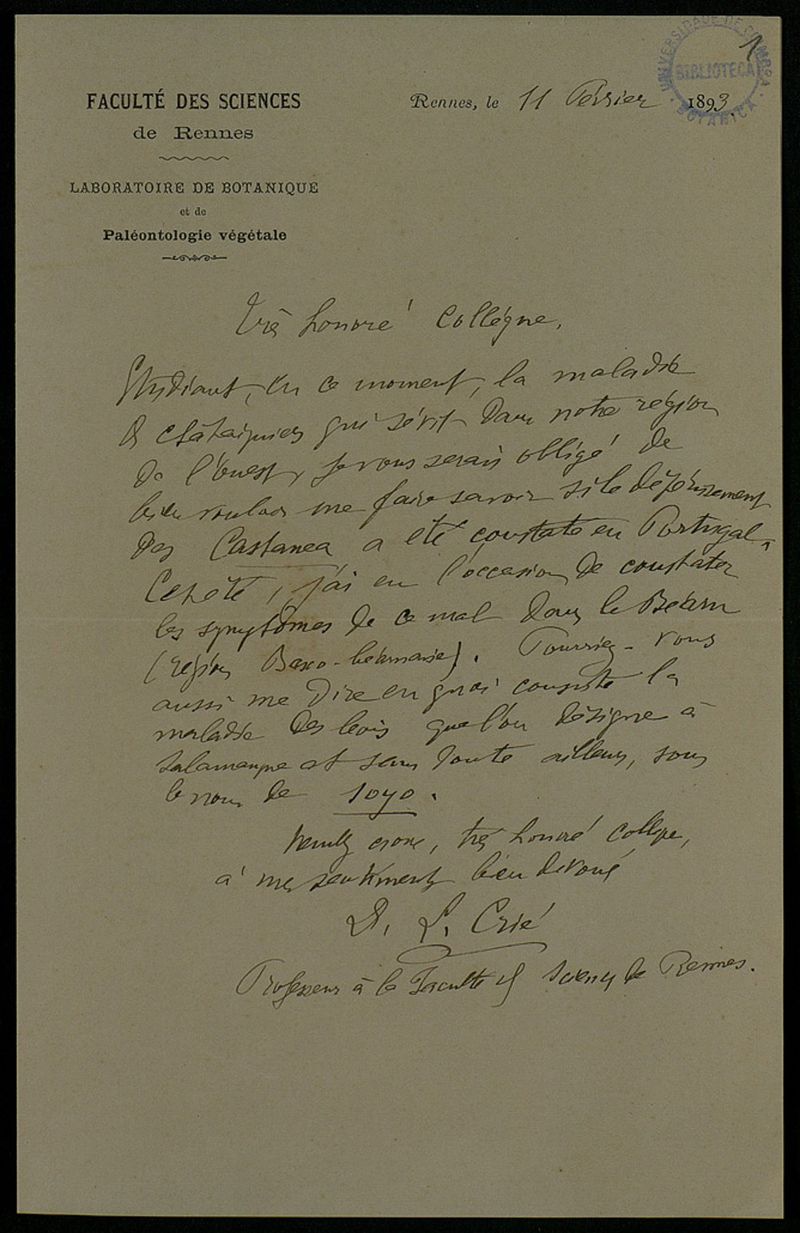 1
UNIVERSIDADE DE COIMBRA
BIBLIOTECA
BOTANICA
FACULTÉ DES SCIENCES
de Rennes
LABORATOIRE DE BOTANIQUE
et de
Paléontologie végétale
Rennes, le 11 Février 1893.
Très honoré Collègue,
Etudiant, en ce moment, la maladie
des châtaigniers qui sévit dans notre région
de l'ouest, je vous serais obligé de
bien vouloir me faire savoir si le dépérissement
des Castanea a été constaté en Portugal.
Cet été, j'ai eu l'occasion de constater
les symptômes de ce mal dans le Béarn
(région Basco-béarnaise). Pourriez-vous
aussi me dire en quoi consiste la
maladie des bois que l'on désigne à
Salamanque et sans doute ailleurs, sous
le nom de
Veuillez croire, très honoré collègue,
à mes sentiments bien dévoués
L. Crié
Professeur à la Faculté des Sciences de Rennes.